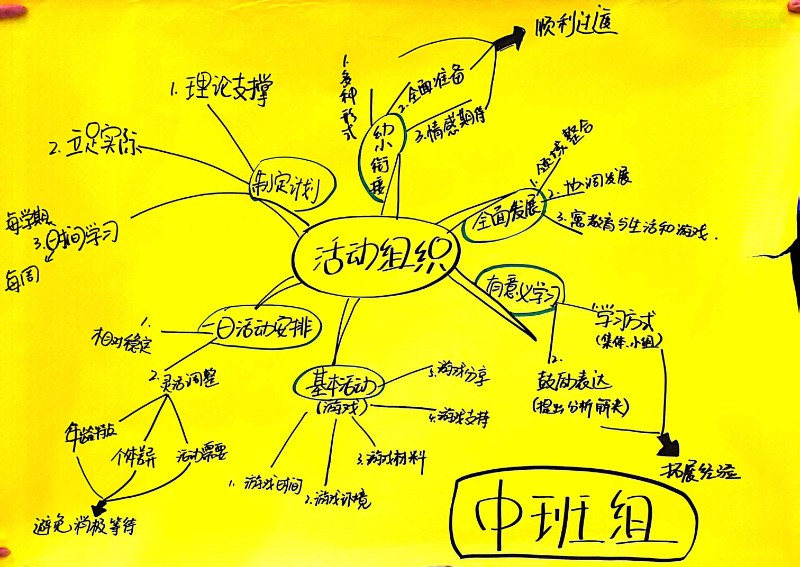 顺利过度
1.多种形式
2.全面准备
3.情感期待
幼小衔接
1.理论支撑
2.立足实际
每学期
3.时间学习
每周
制定计划
1.领域整合
2.协调发展
3.寓教育与生活和游戏.
全面发展
活动组织
有意义学习
1.学习方式
(集体、小组)
2.
鼓励表达
(提出分析解决)
拓展经验
一日活动安排
1.
相对稳定
2.灵活调整
年龄特点
个体差异
活动需要
避免消极等待
基本活动
(游戏)
5.游戏分享
4.游戏支持
3.游戏材料
2.游戏环境
1.游戏时间
中班组